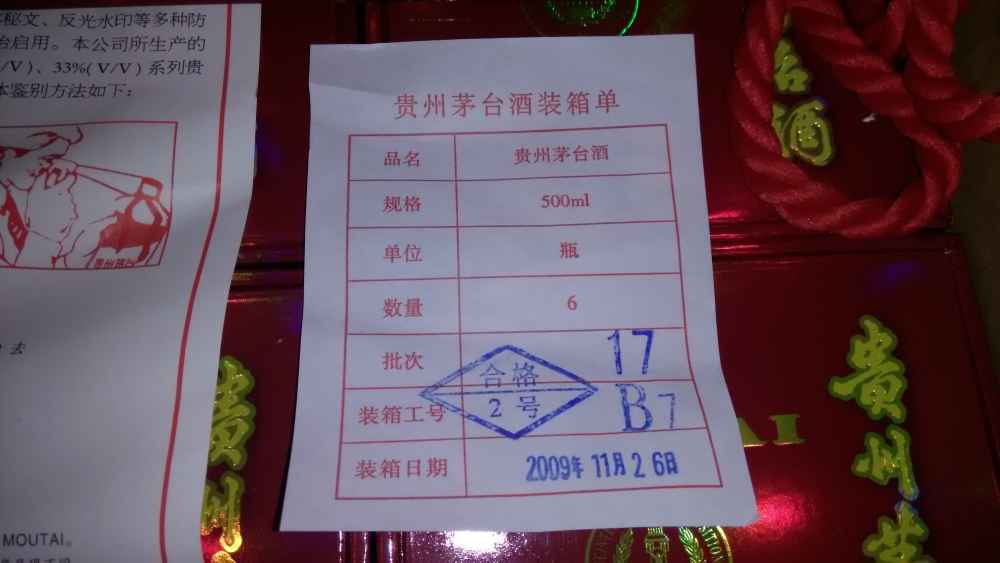 秘文、反光水印等多种防
启用。本公司所生产的
/V)、33%(V/V)系列贵
鉴别方法如下:
去
MOUTAI。
贵州茅台酒装箱单
品名 贵州茅台酒
规格 500ml
单位 瓶
数量 6
批次 17
合格
2号
装箱工号 B7
装箱日期 2009年 11月 2 6日
台
酒
贵
州
AI
贵
州
茅